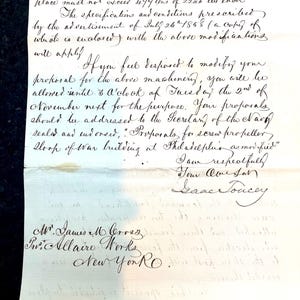 place must not exceed
The specifications and conditions prescribed
by the advertisement of July 26th 1858 (a copy of
which is enclosed) with the above modifications
will apply
If you feel disposed to modify your
proposal for the above machinery, you will be
allowed until 3 o'clock of Tuesday the 2nd of
November next for the purpose. Your proposals
should be addressed to the Secretary of the Navy
sealed and endorsed, "Proposals for screw propeller
Sloop of War building at Philadelphia as modified"
I am respectfully
Your Obt Svt
Isaac Toucey
Mr. James M.
Allaire Works
New York